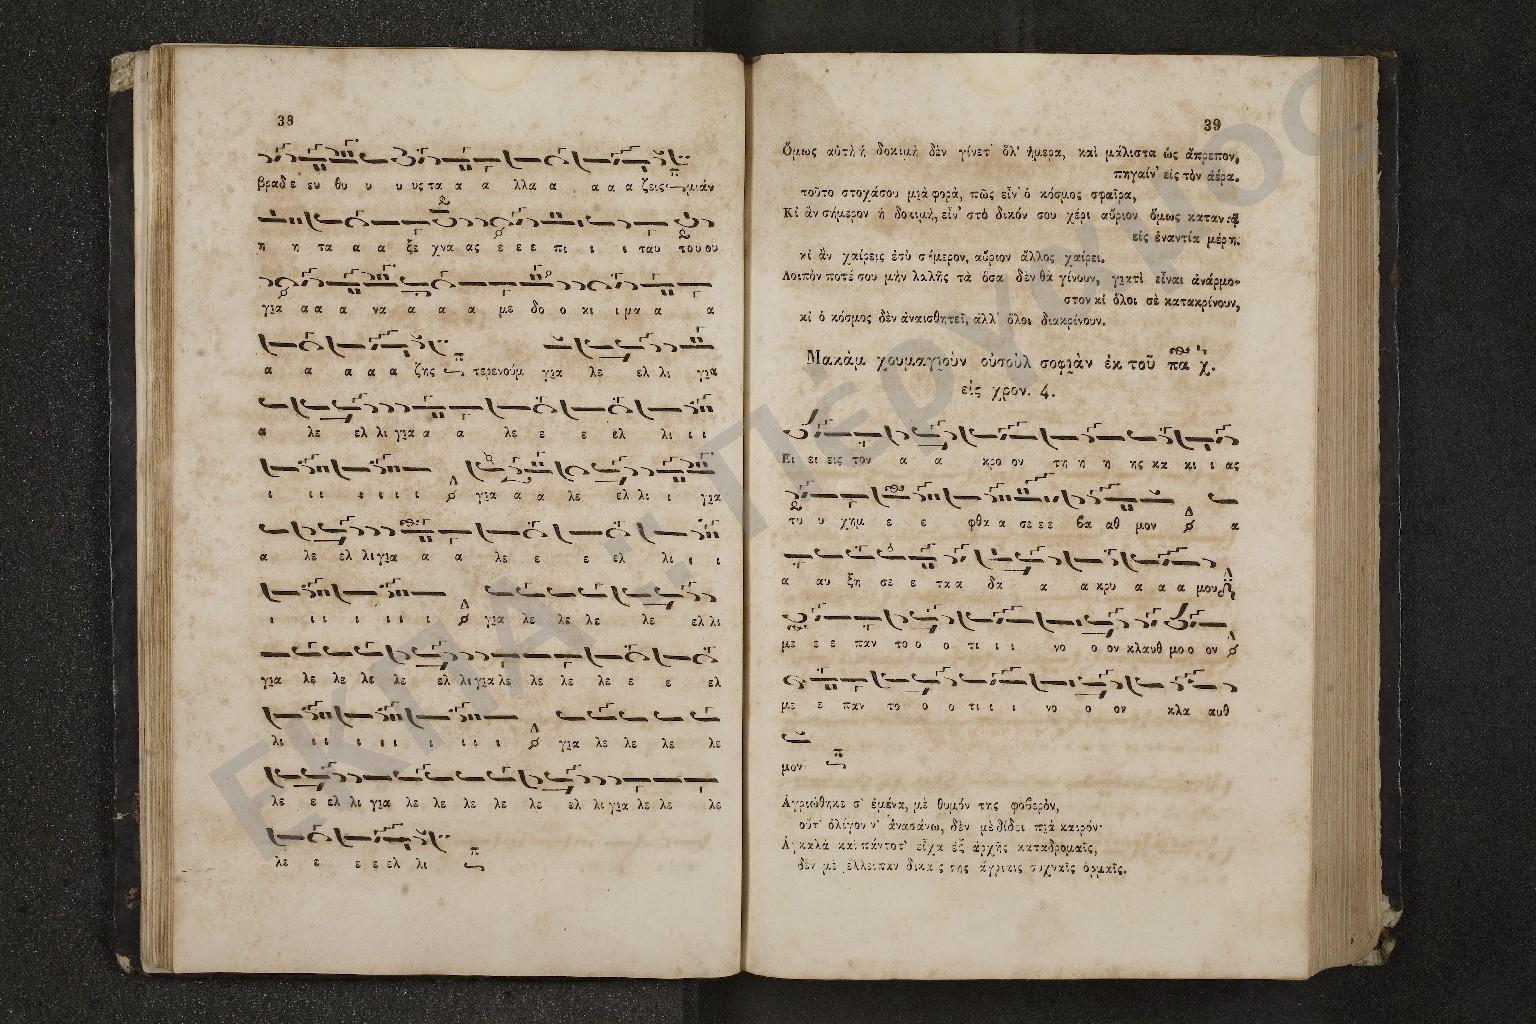 38
βραδε ευ θυ υ υ υς τα α α λλα α α α α ζεις μιάν
η η τα α α ξε χνα ας ε ε ε πι ι ι ταυ του ου
για α α α να α α α με δο ο κι ι μα α α
α α α α α ζης τερενούμ για λε ελ λι για
α λε ελ λι για α α λε ε ε ελ λι ι ι
ι ι ι ι ι ι ι για α α λε ελ λι ι για
α λε ελ λι για α α λε ε ε ελ λι ι ι
ι ι ι ι ι ι ι για λε λε λε λε ελ λι
για λε λε λε λε ελ λι για λε λε λε λε ε ε ελ
λι ι ι ι ι ι ι ι ι για λε λε λε λε
λε ε ελ λι για λε λε λε λε λε ελ λι για λε λε λε
λε ε ε ε ελ λι
39
Ὅμως αὐτὴ ἡ δοκιμὴ δὲν γίνετ' ὅλ' ἡμερα, καὶ μάλιστα ὡς ἄπρεπον,
πηγαίν' εἰς τὸν ἀέρα.
τοῦτο στοχάσου μιὰ φορὰ, πῶς εἶν' ὁ κόσμος σφαῖρα,
Κι ἂν σήμερον ἡ δοκιμὴ, εἶν' στὸ δικόν σου χέρι αὔριον ὅμως καταντᾷ
εἰς ἐναντία μέρη.
κι ἂν χαίρεις ἐσὺ σήμερον, αὔριον ἄλλος χαίρει.
Λοιπὸν ποτέ σου μὴν λαλῇς τὰ ὅσα δὲν θὰ γίνουν, γιατὶ εἶναι ἀνάρμο-
στον κι ὅλοι σὲ κατακρίνουν,
κι ὁ κόσμος δὲν ἀναισθητεῖ, ἀλλ' ὅλοι διακρίνουν.
Μακὰμ χουμαγιοὺν οὐσοὺλ σοφιὰν ἐκ τοῦ πα
εἰς χρον. 4.
Ει ει εις τον α α κρο ον τη η η ης κα κι ι ας
του υ χημ ε ε φθα α σε ε ε βα αθ μον α
α αυ ξη σε ε τα α δα α α κρυ α α α μου
με ε ε παν το ο ο τι ι ι νο ο ον κλαυθ μο ο ον
με ε παν το ο ο τι ι ι νο ο ον κλα αυθ
μον
Ἀγριώθηκε σ' ἐμένα, μὲ θυμόν της φοβερὸν,
οὔτ' ὀλίγον ν' ἀνασάνω, δὲν μὲ δίδει πιὰ καιρόν·
Ἀγκαλὰ καὶ πάντοτ' εἶχα ἐξ ἀρχῆς καταδρομαῖς,
δὲν μὲ ἔλλειπαν δικαίς της ἄγριαις συχναῖς ὁρμαῖς.
ΕΚΠΑ | Πέργαμος